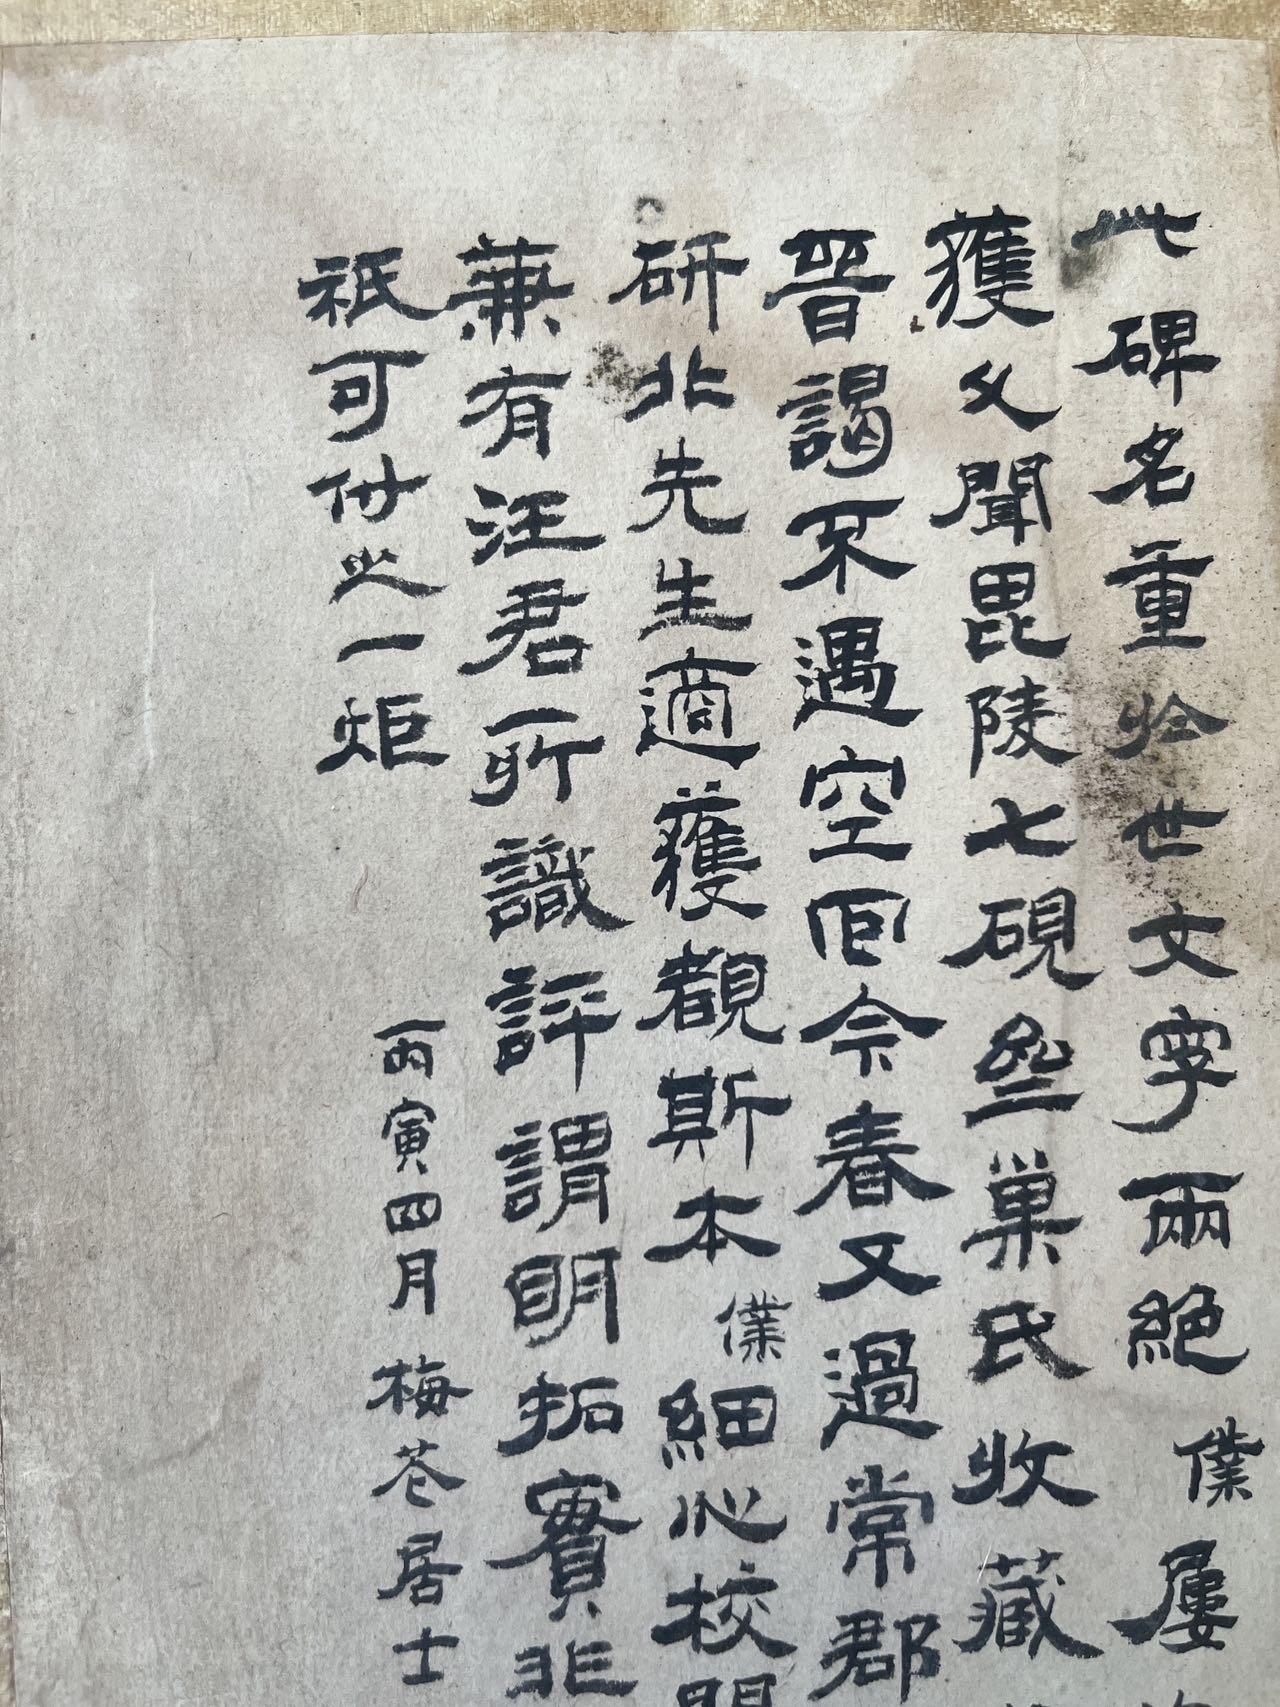 此碑名重於世文字兩絕僕屢
獲久聞毘陵七硯巢氏收藏
晉謁不遇空回今春又過常郡
研北先生適獲覩斯本僕細心校
兼有汪君所識評謂明拓實非
祇可付之一炬
丙寅四月梅花居士